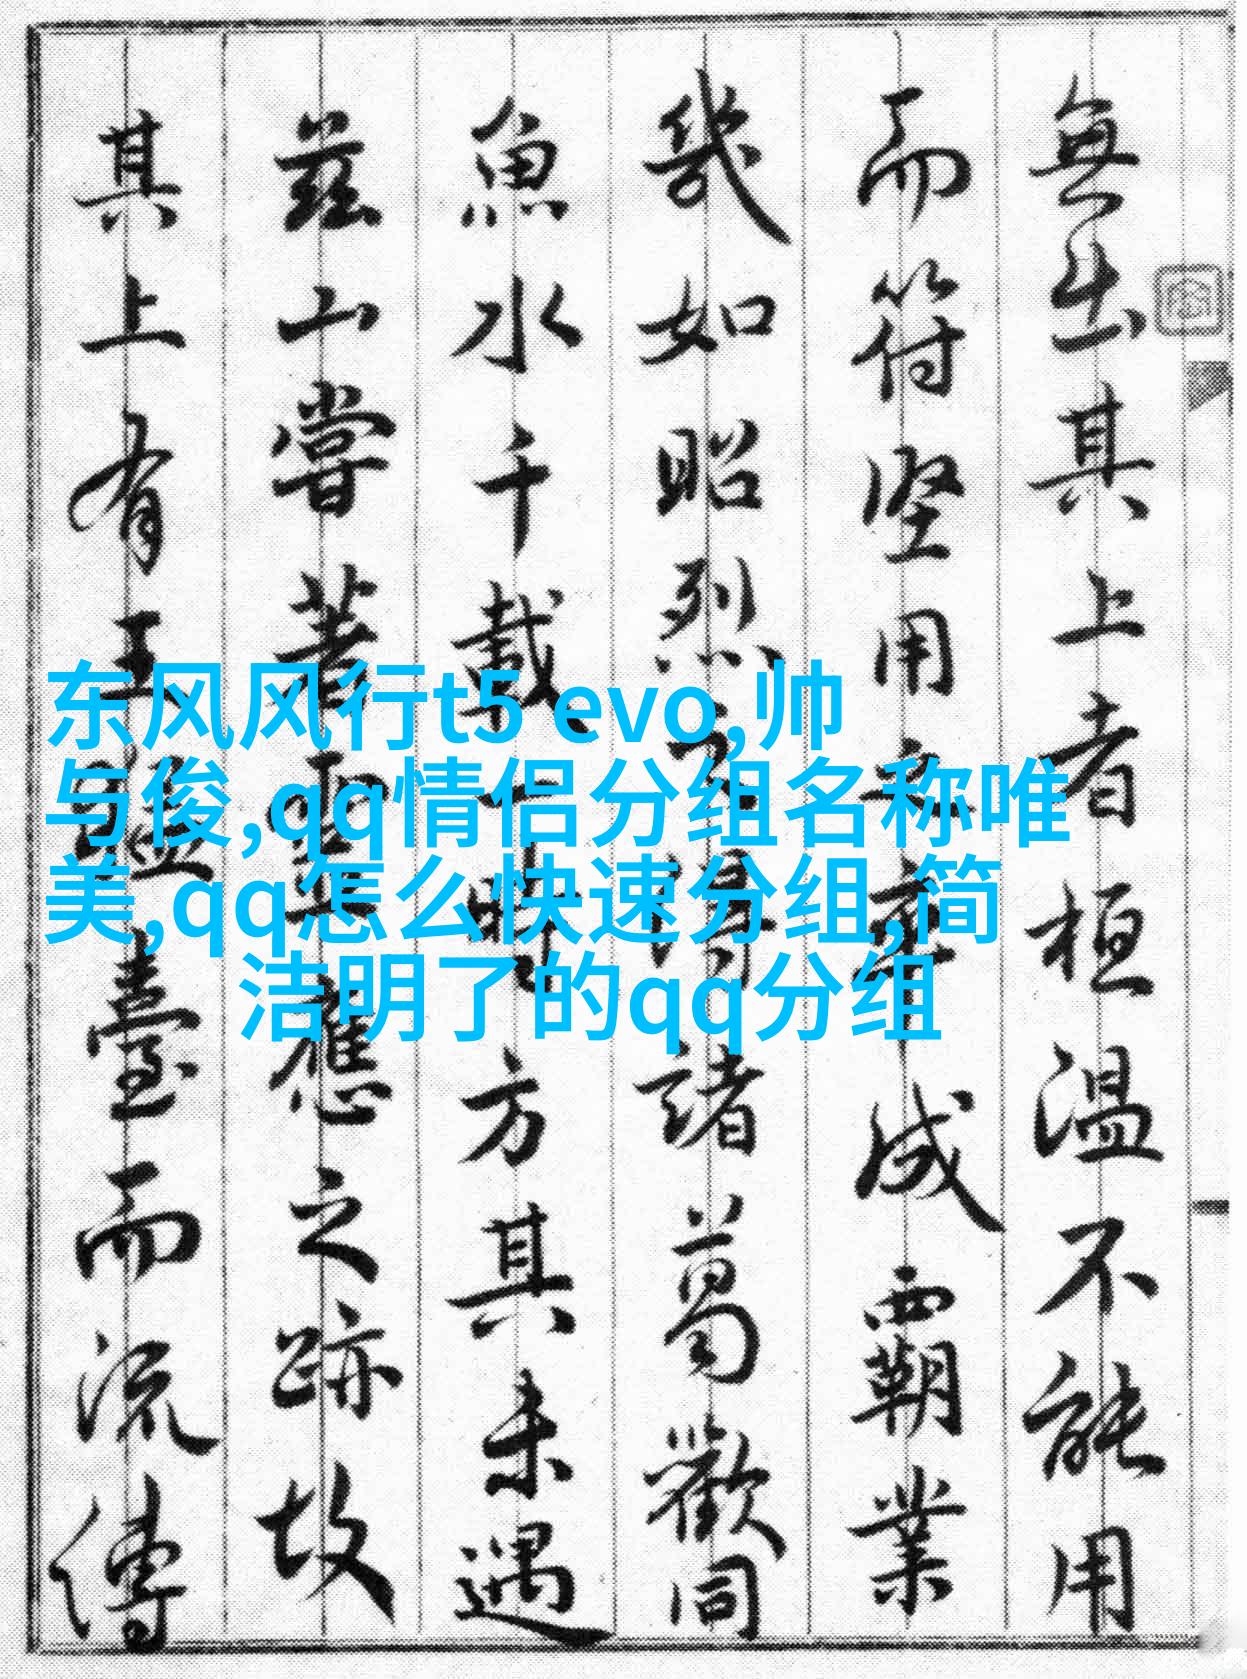 東风风行t5 evo,帅
与俊,qq情侣分组名称唯
美,qq怎么快速分组,简
洁明了的qq分组
無出其上者桓温不能用
而符堅用之成霸業
幾如昭烈之得諸葛歡同
魚水千載一時方其未遇
茲山嘗著靈應之跡故
其上有王猛臺而流傳